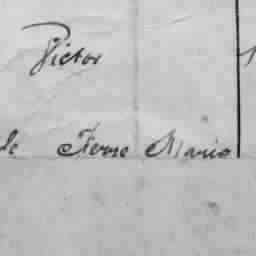 Victor
de Ferre Mario